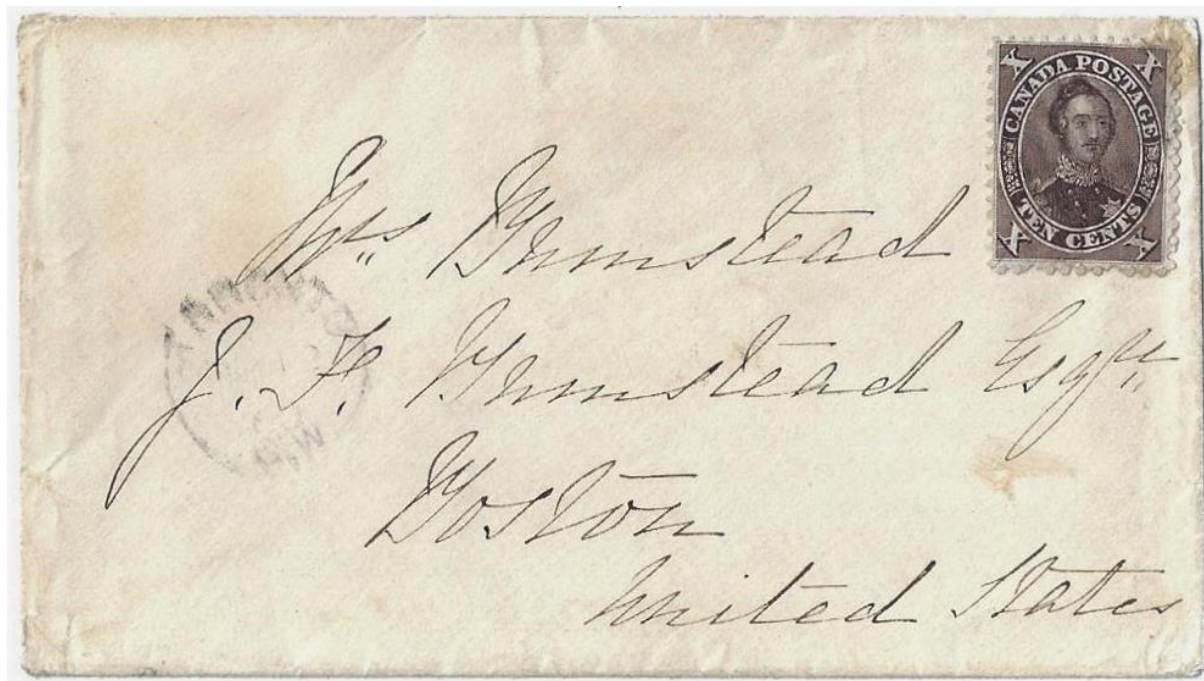 X X
CANADA POSTAGE
TEN CENTS
X X
Mrs Bumstead
J. F. Bumstead Esqre
Boston
United States
TORONTO